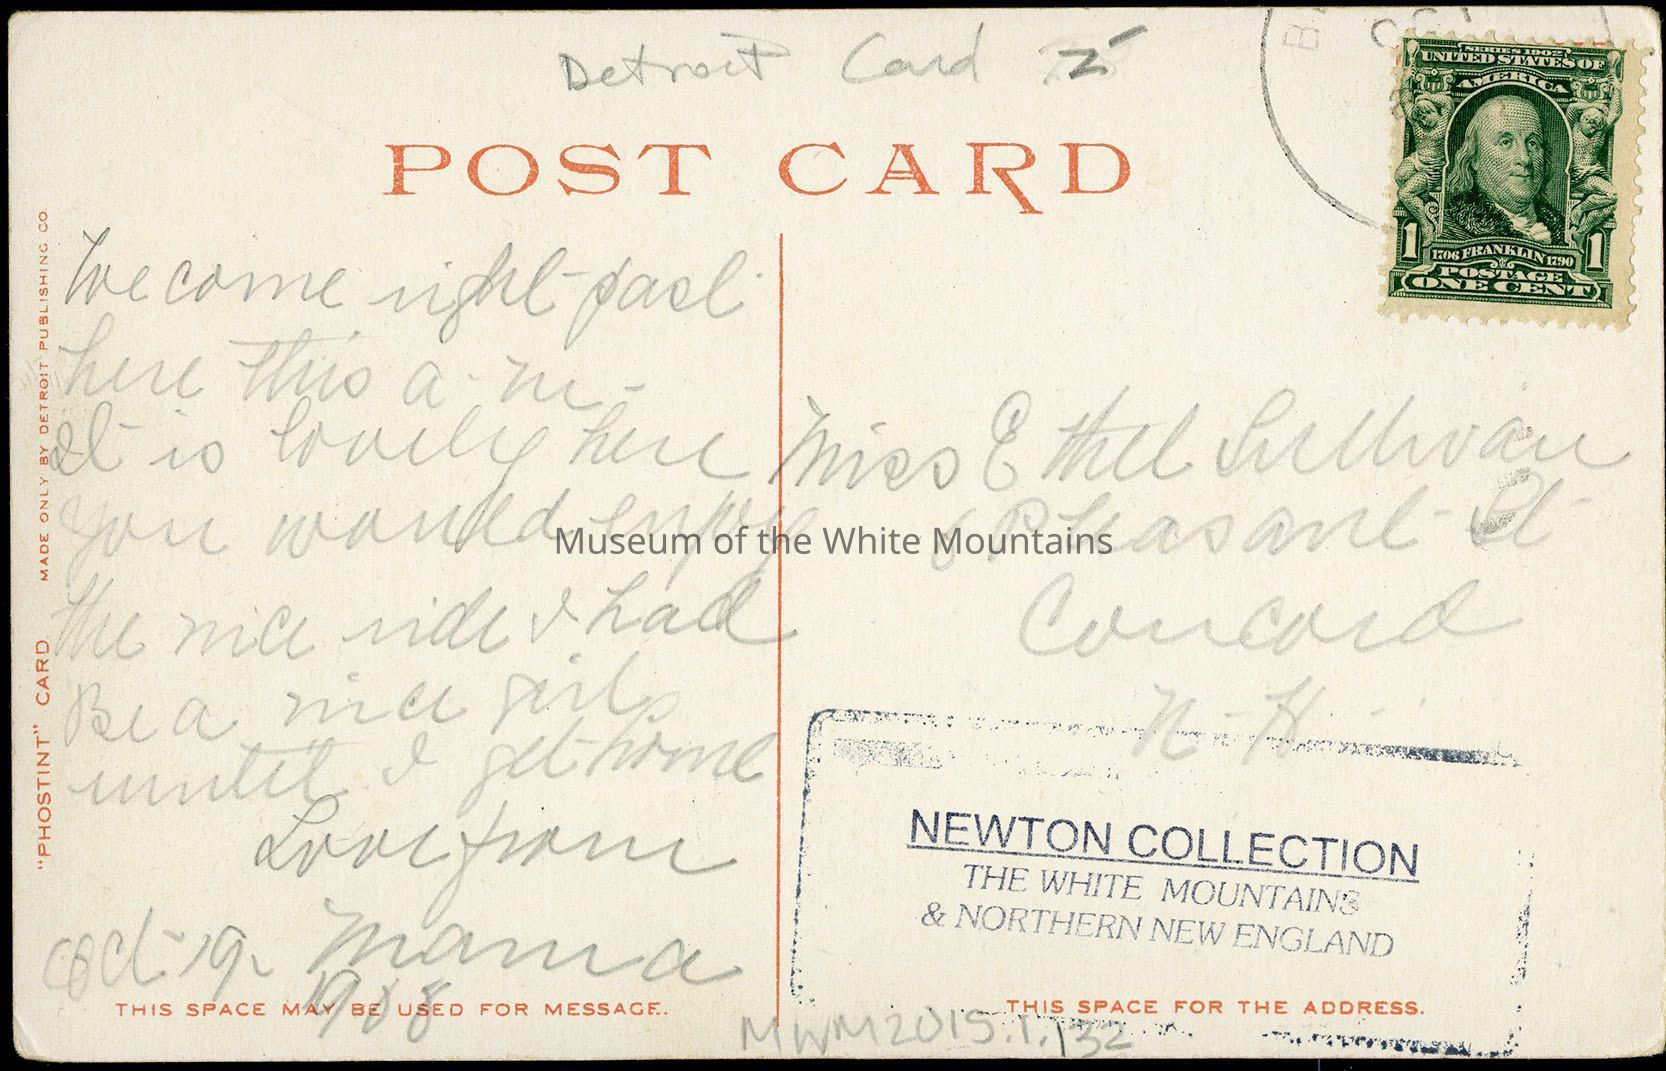 Detroit Card
POST CARD
SERIES 1902
UNITED STATES OF
AMERICA
1 1706 FRANKLIN 1790 1
POSTAGE
ONE CENT
"PHOSTINT" CARD MADE ONLY BY DETROIT PUBLISHING CO
We come right past
here this a-m-
It is lovely here
you would enjoy
the nice ride I had
Be a nice girls
until I get home
Love from
Mama
Oct-19-
1908
Miss Ethel Sullivan
Pleasant St
Concord
N-H-
Museum of the White Mountains
NEWTON COLLECTION
THE WHITE MOUNTAINS
& NORTHERN NEW ENGLAND
THIS SPACE MAY BE USED FOR MESSAGE.
THIS SPACE FOR THE ADDRESS.
MWM2015.1.132